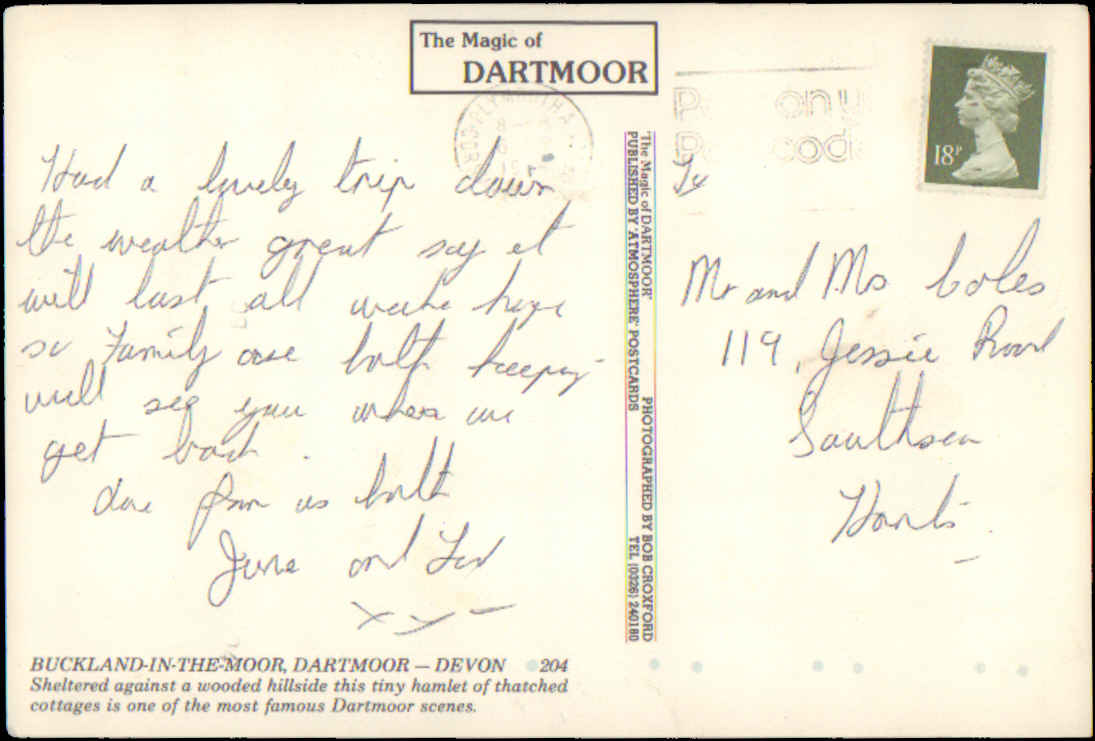 The Magic of
DARTMOOR
18P
Had a lovely trip down
the weather great say it
will last all weeke hope
so Family are both keeping
well see you when we
get back.
love from us both
June and
x x
To
Mr and Mrs Coles
119, Jessie Road
Southsea
Hants.
'The Magic of DARTMOOR'
PUBLISHED BY 'ATMOSPHERE' POSTCARDS
PHOTOGRAPHED BY BOB CROXFORD
TEL (0326) 240180
BUCKLAND-IN-THE-MOOR, DARTMOOR — DEVON 204
Sheltered against a wooded hillside this tiny hamlet of thatched
cottages is one of the most famous Dartmoor scenes.